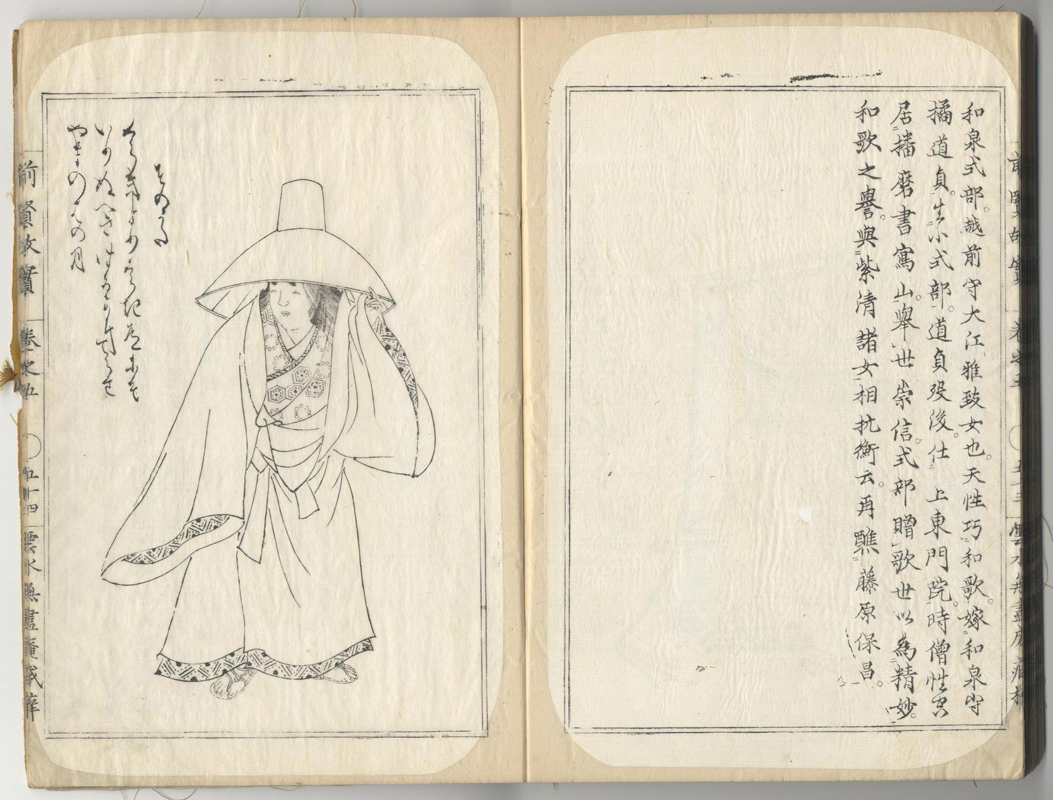 和泉式部。越前守大江雅致女也。天性巧和歌。嫁和泉守
橘道貞。生小式部。道貞歿後。仕 上東門院。時僧性空
居播磨書寫山。舉世崇信。式部贈歌世以為精妙。
和歌之譽。與紫清諸女相抗衡云。再醮藤原保昌。
そのうた
くらきよりくらき道にそ
いりぬへきはるかにてらせ
やまのはの月
前賢故實 卷之五 〇 五十四 雲水無盡庵藏梓